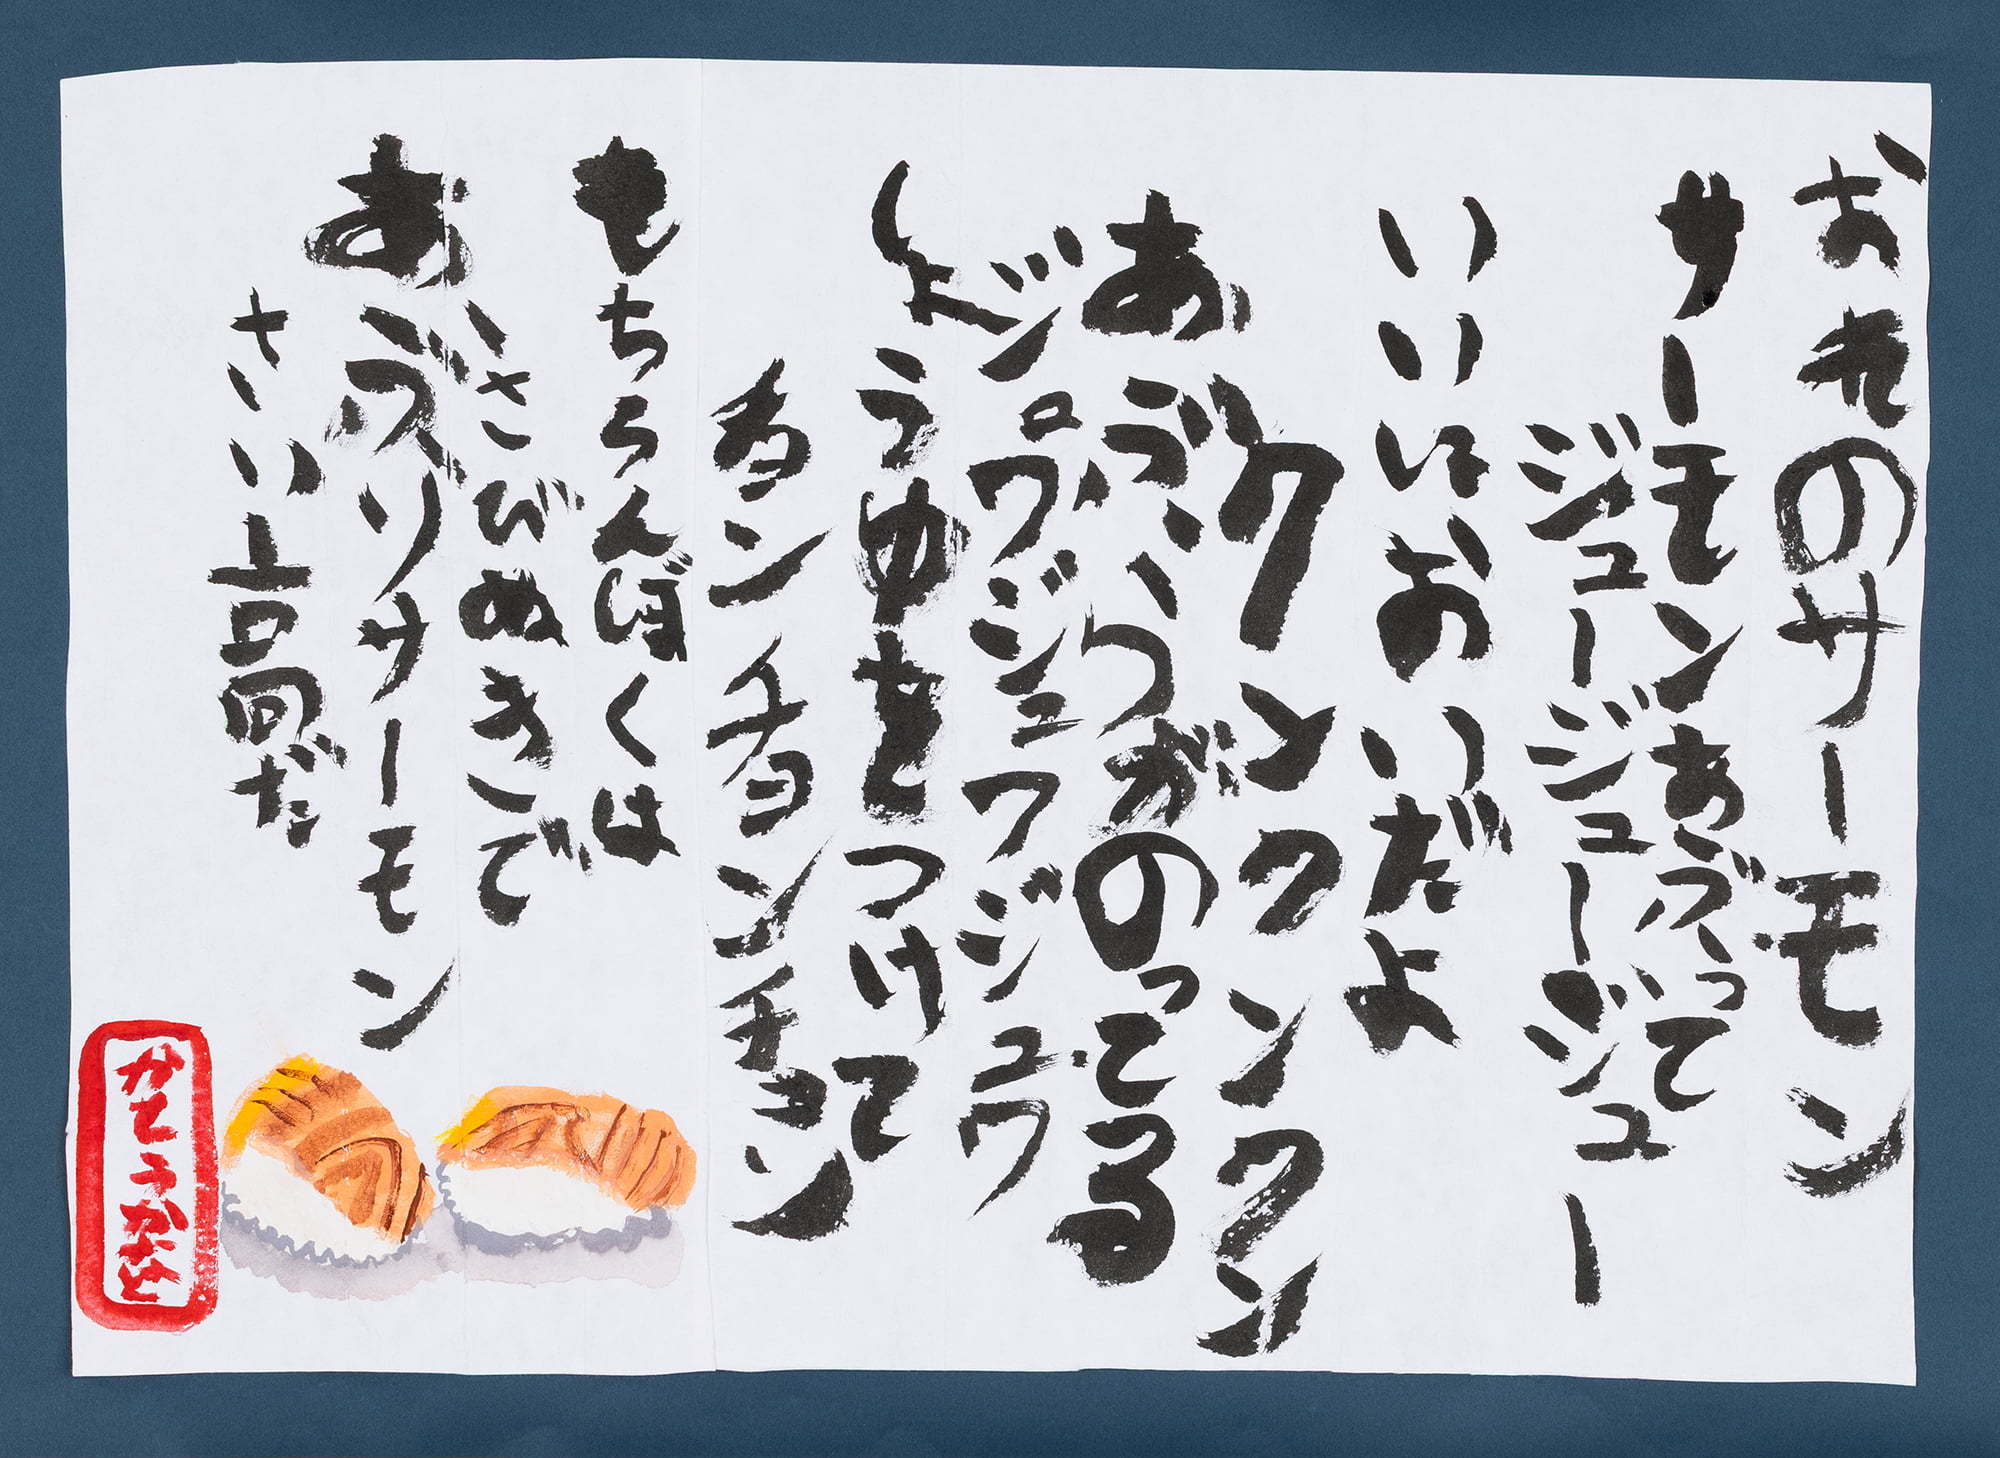 おれのサーモン
サーモンあぶって
ジュージュージュー
いいにおいだよ
クンクンクン
あぶらがのってる
ジュワジュワジュワ
しょうゆをつけて
チョンチョンチョン
もちろんぼくは
さびぬきで
あぶりサーモン
さい高だ